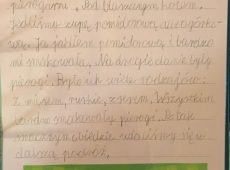 pierogarni „Pod blaszanym kotem".
Jedliśmy zupę pomidorową albo ogórko-
wą. Ja jadłem pomidorową i bardzo
mi smakowała. Na drugie danie były
pierogi. Było ich wiele rodzajów:
z mięsem, ruskie, z serem. Wszystkim
bardzo smakowały pierogi. Po tak
smacznym obiedzie udaliśmy się w
dalszą podróż.